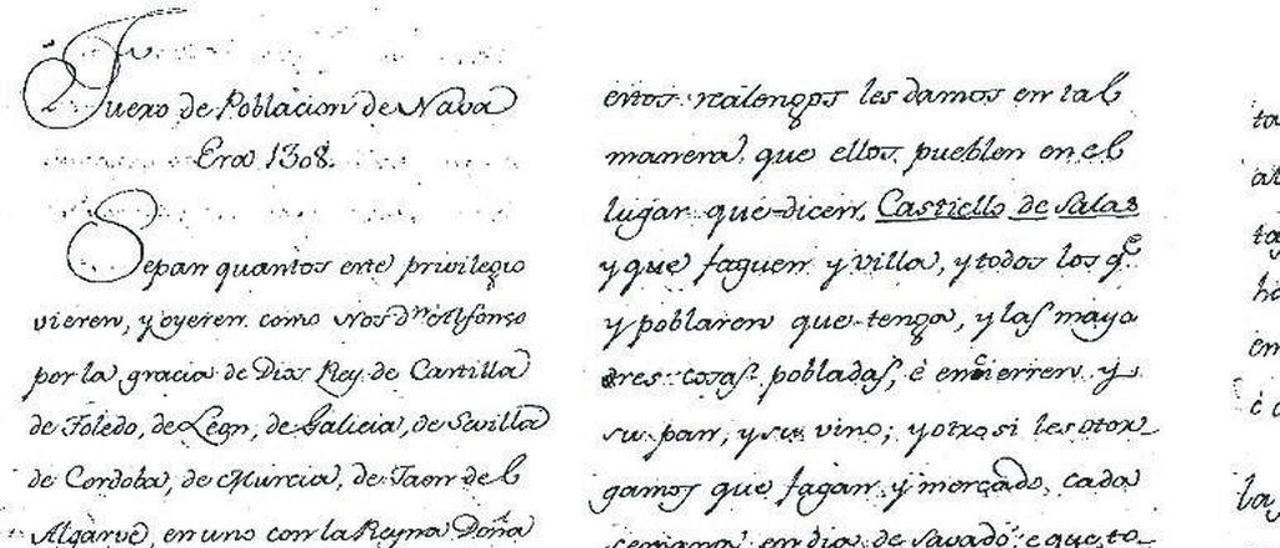 Fuero de Poblacion de Nava
Era 1308.
Sepan quantos este privilegio
vieren, y oyeren como Nos dⁿ Alfonso
por la gracia de Dios Rey de Castilla
de Toledo, de Leon, de Galicia, de Sevilla
de Cordoba, de Murcia, de Jaen del
Algarve, en uno con la Reyna Doña
estos realengos les damos en tal
manera que ellos pueblen en el
lugar que dicen, Castiello de Salas
y que faguen y villa, y todos los qᵉ
y poblaren que tenga, y las mayo
dres cosas pobladas, è encierren y
su pan, y su vino; y otrosi les otor_
gamos que fagan y mercado, cada
semana en dia de Savado: e que to_
ta
em
la